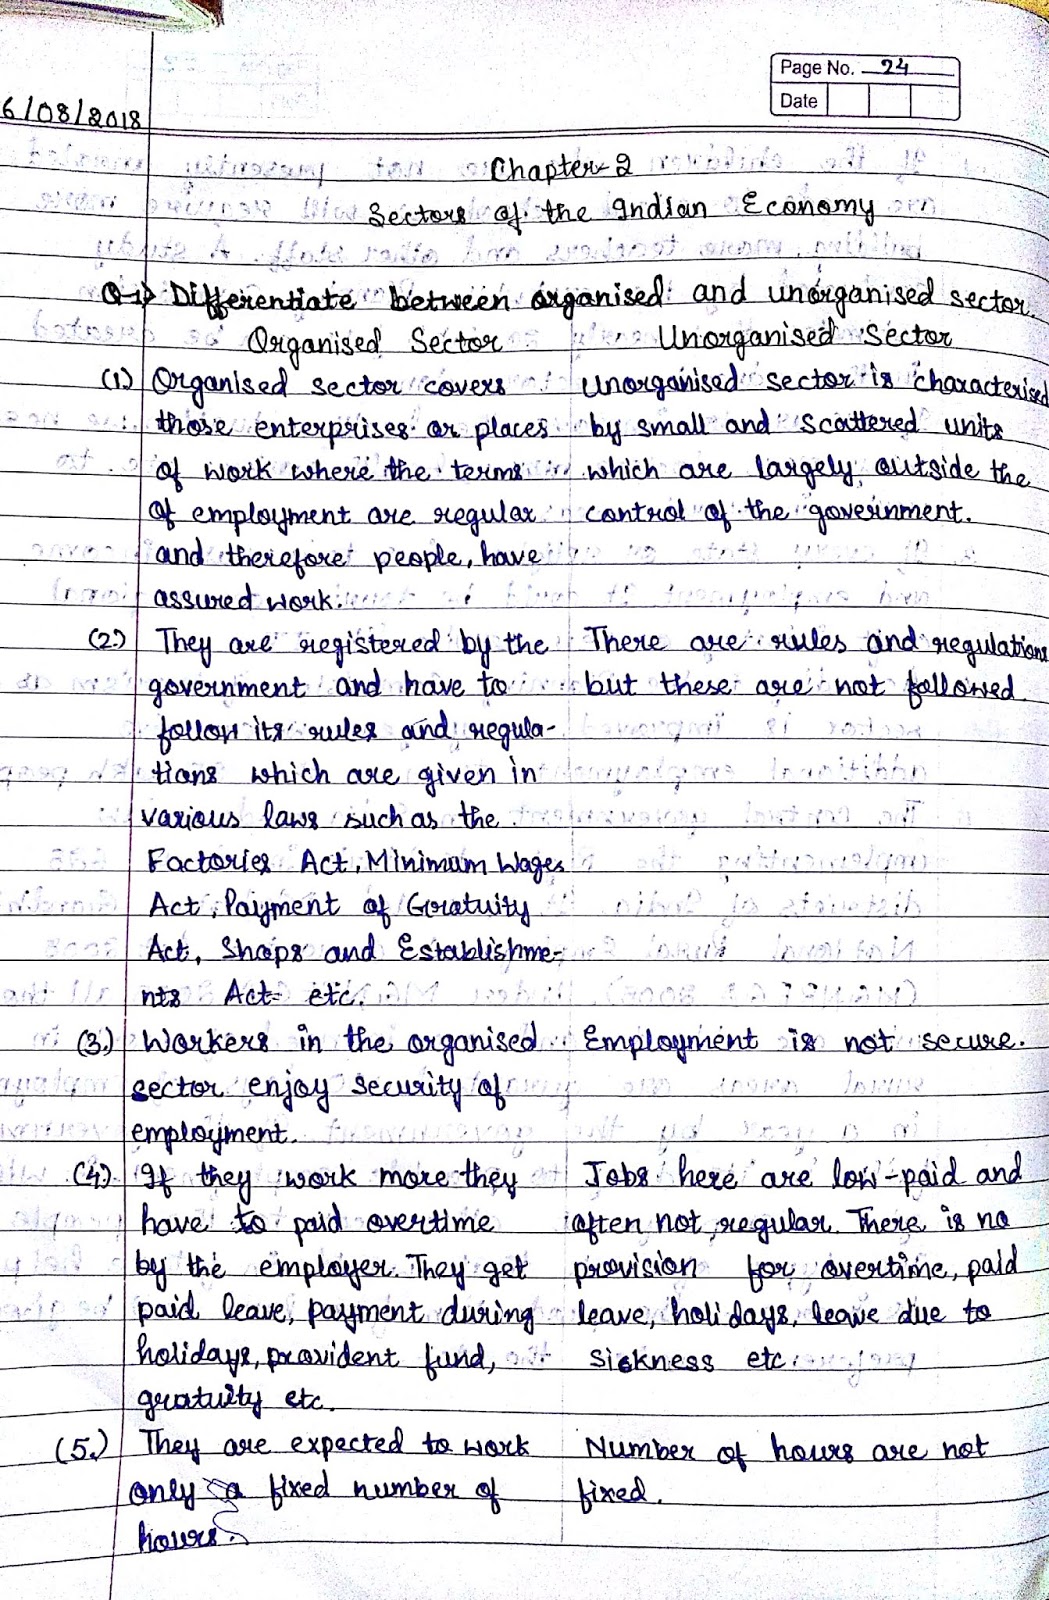 Page No. 24
Date
6/08/2018
Chapter-2
Sectors of the Indian Economy
Q-1> Differentiate between organised and unorganised sector.
Organised Sector
(1) Organised sector covers
those enterprises or places
of work where the terms
of employment are regular
and therefore people, have
assured work.
(2.) They are registered by the
government and have to
follow its rules and regula-
tions which are given in
various laws such as the
Factories Act, Minimum Wages
Act, Payment of Gratuity
Act, Shops and Establishme-
nts Act etc.
(3.) Workers in the organised
sector enjoy security of
employment.
(4.) If they work more they
have to paid overtime
by the employer. They get
paid leave, payment during
holidays, provident fund,
gratuity etc.
(5.) They are expected to work
only a fixed number of
hours.
Unorganised Sector
Unorganised sector is characterised
by small and scattered units
which are largely outside the
control of the government.
There are rules and regulations
but these are not followed.
Employment is not secure.
Jobs here are low-paid and
often not regular. There is no
provision for overtime, paid
leave, holidays, leave due to
sickness etc.
Number of hours are not
fixed.